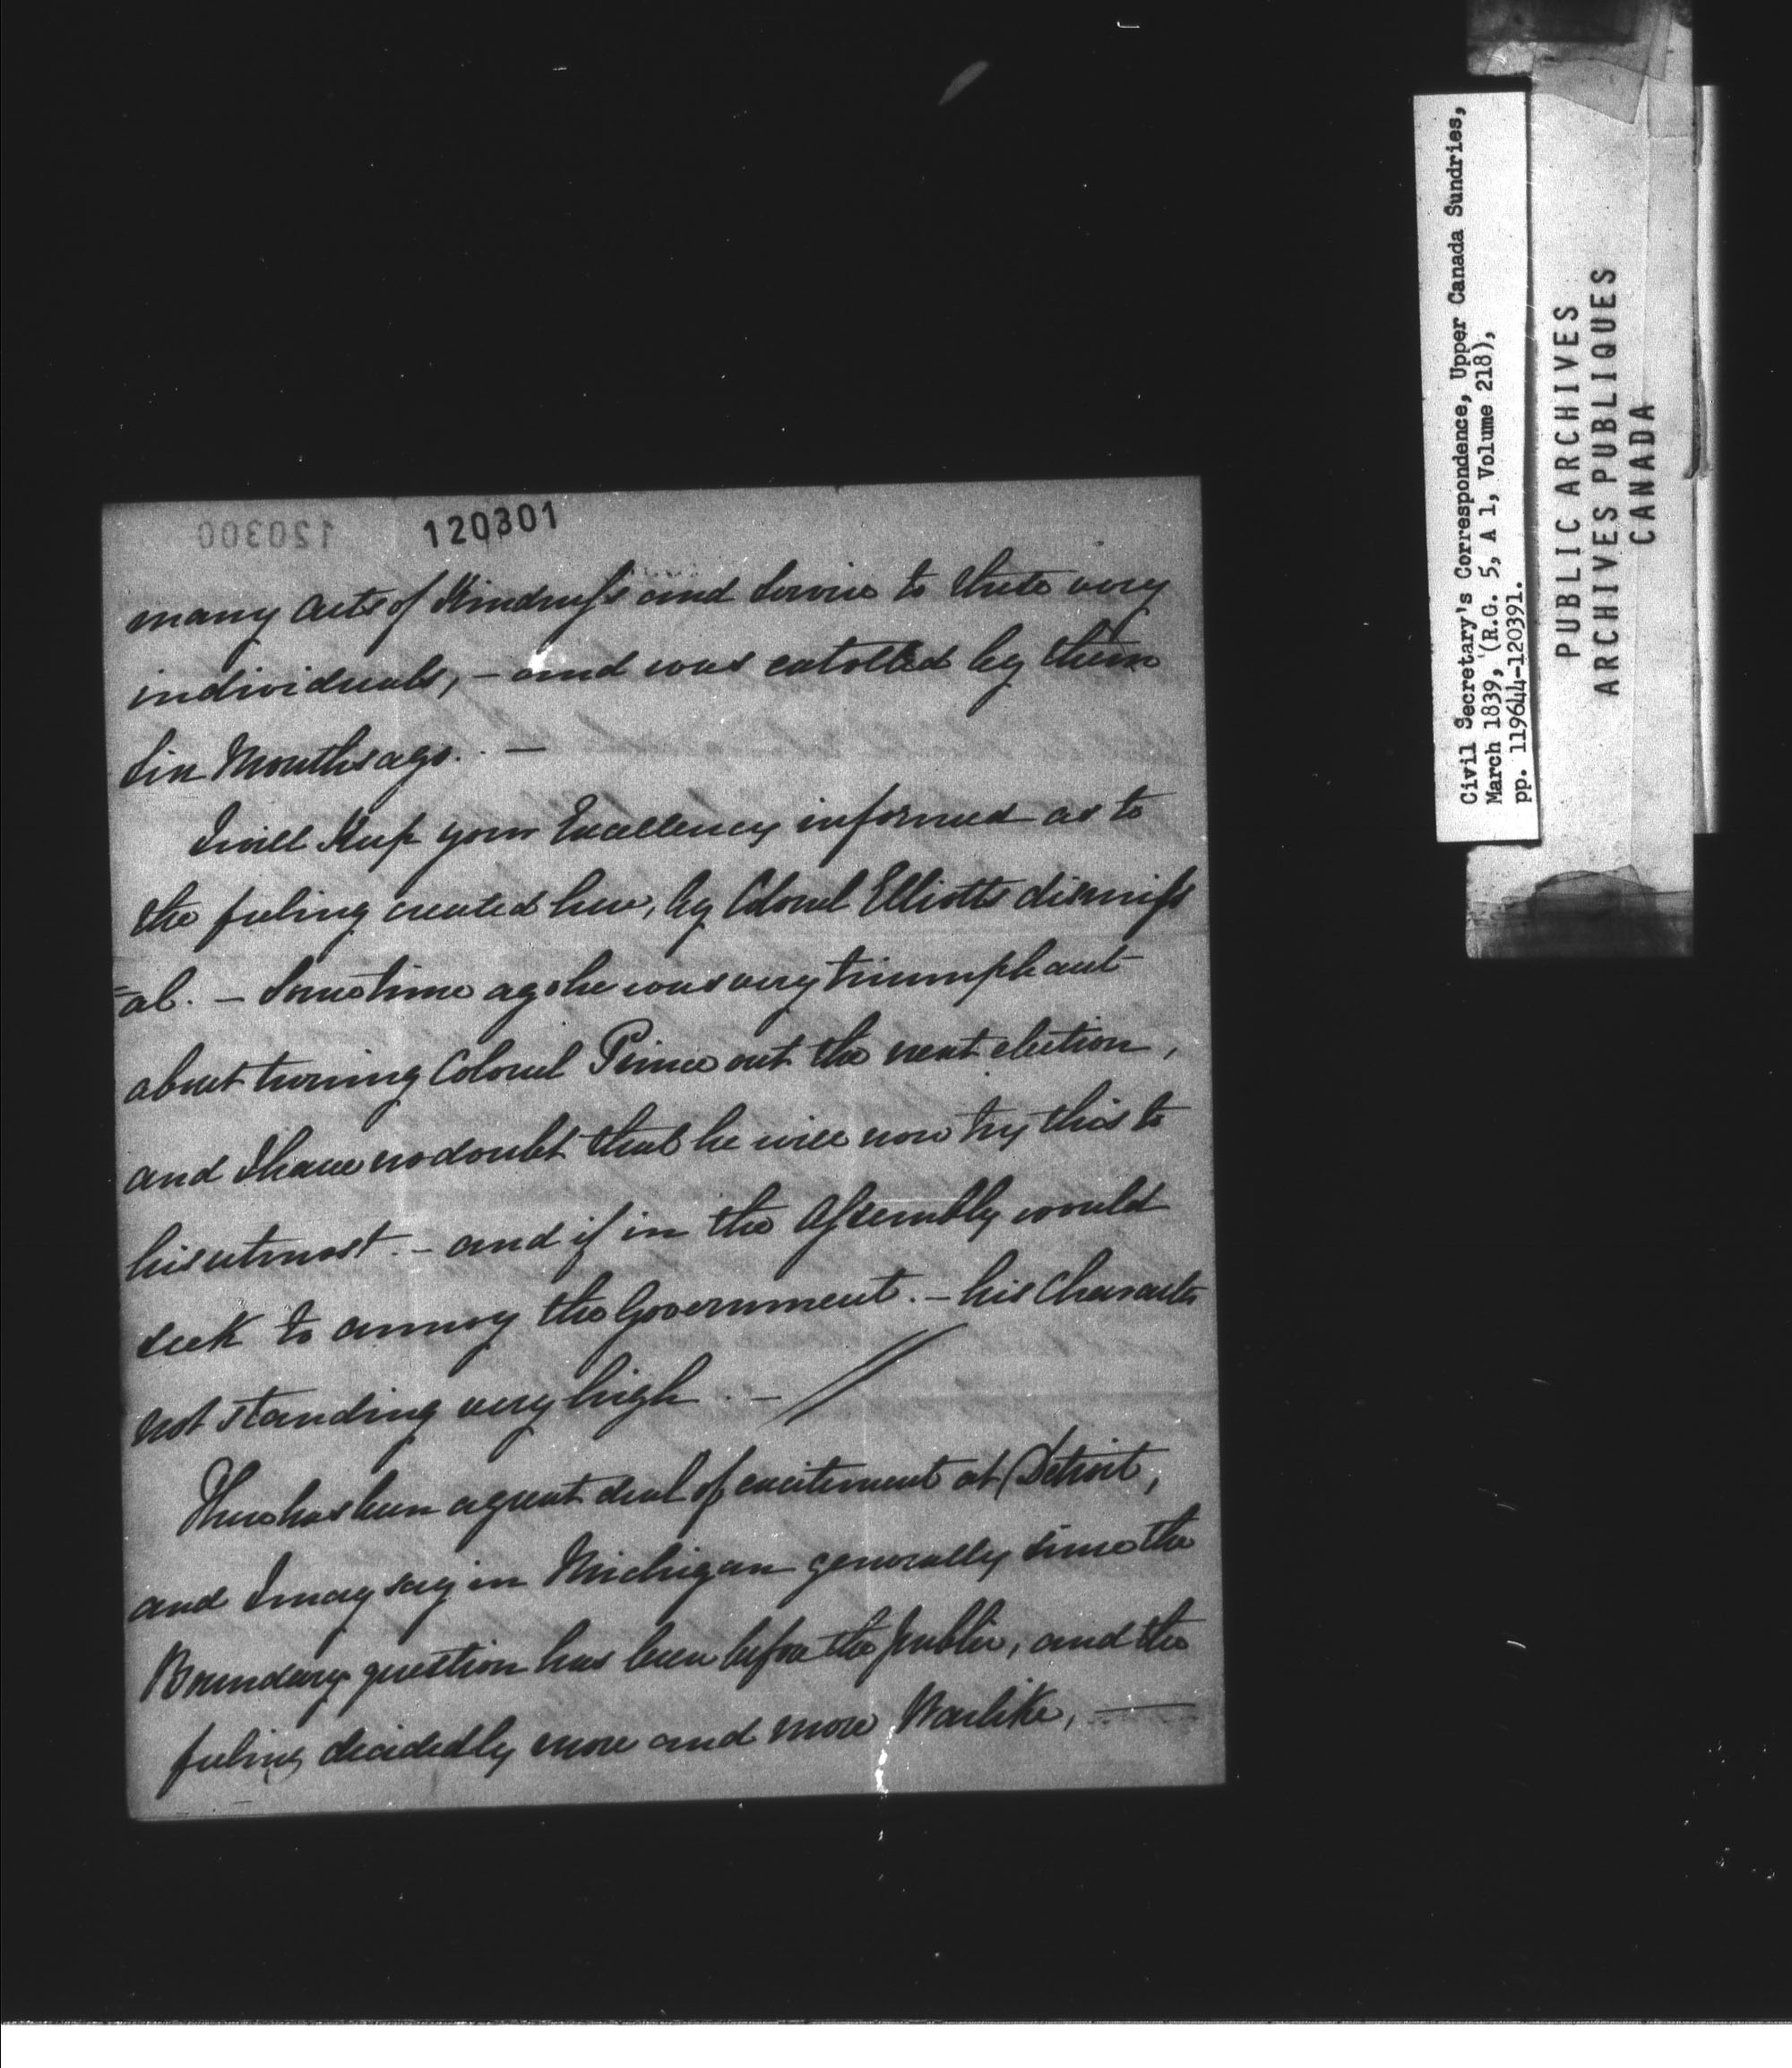 120300
120301
many acts of Kindness and Service to these very
individuals, – and was extolled by them
Six Months ago. –
I will Keep your Excellency informed as to
the feeling created here, by Colonel Elliotts dismiss
=al. – Sometime ago he was very triumphant
about turning Colonel Prince out the next election,
and I have no doubt that he will now try this to
his utmost. – and if in the Assembly would
seek to annoy the Government. – his Character
not standing very high . – //
There has been a great deal of excitement at Detroit,
and I may say in Michigan generally since the
Boundary question has been before the public, and the
feeling decidedly more and more Warlike, —
Civil Secretary's Correspondence, Upper Canada Sundries,
March 1839, (R.G. 5, A 1, Volume 218),
pp. 119644-120391.
PUBLIC ARCHIVES
ARCHIVES PUBLIQUES
CANADA